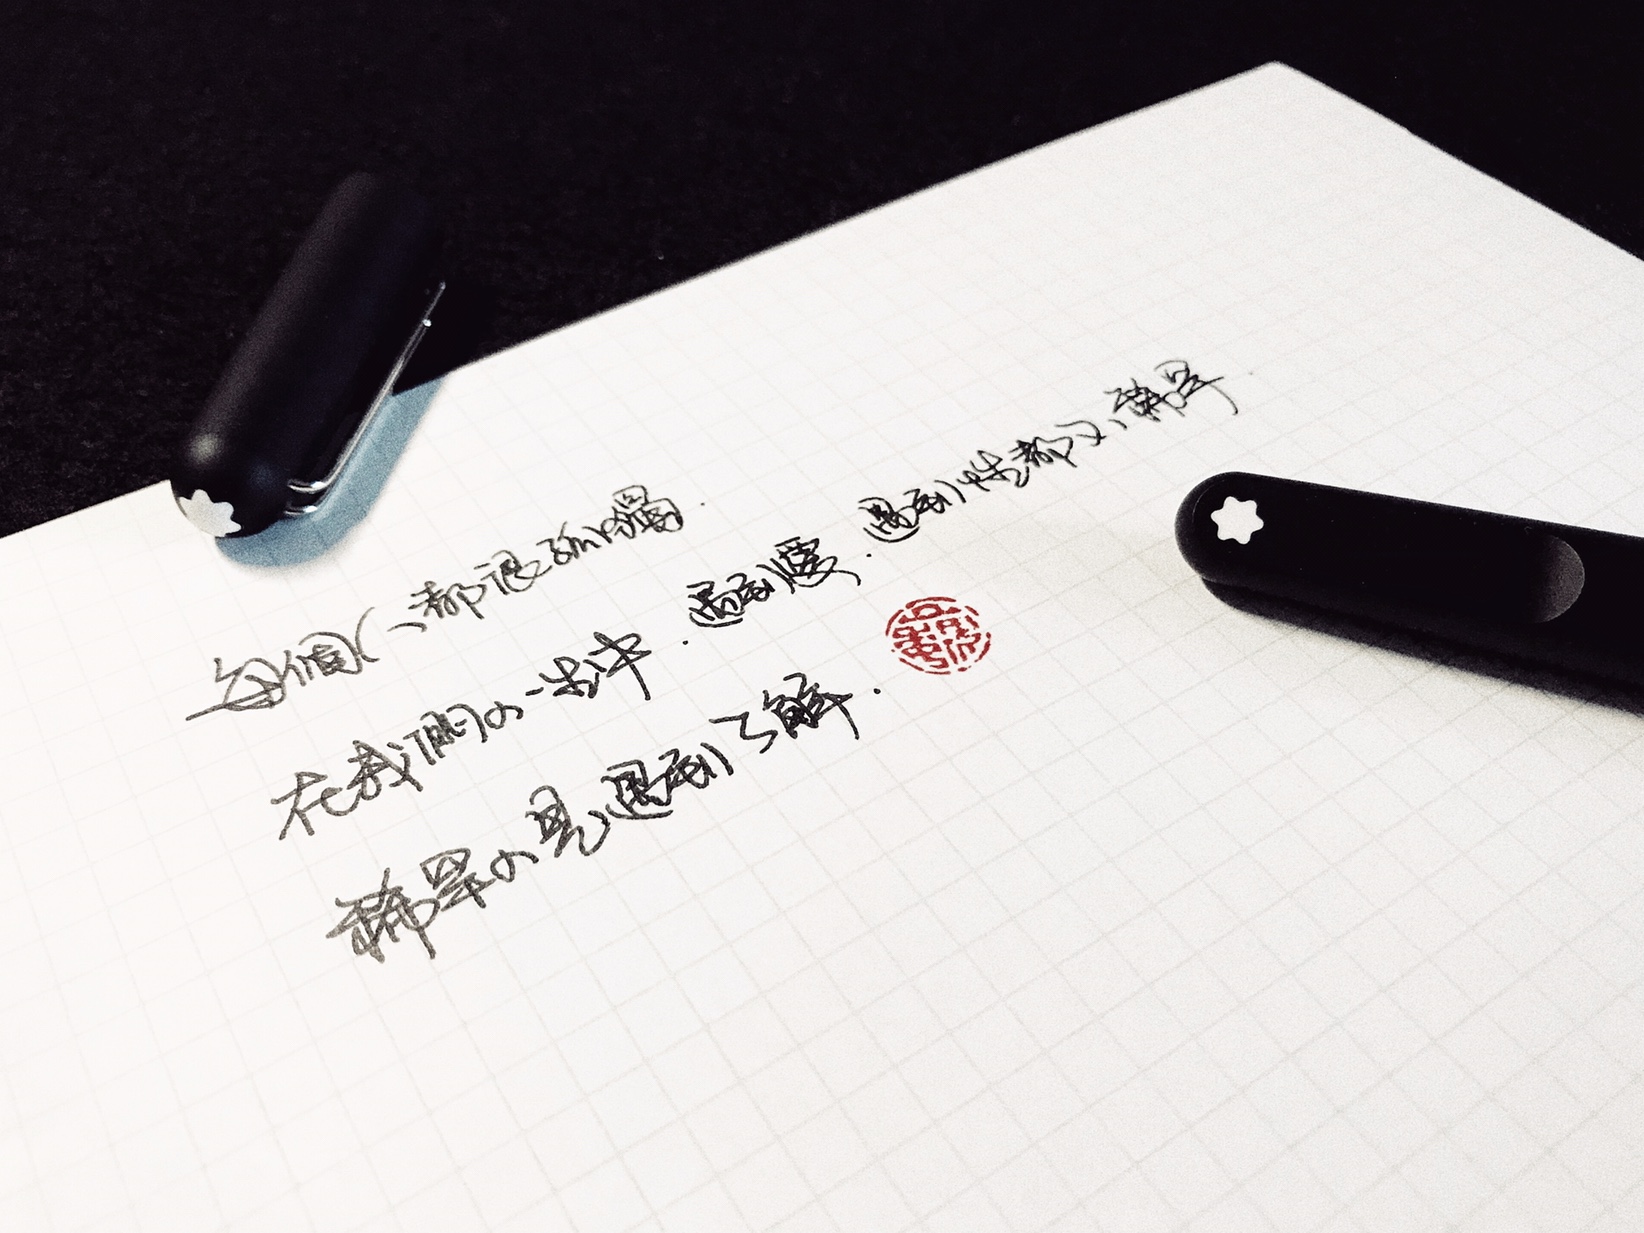 每個人都很孤獨.
在我們的一生中.遇到愛.遇到性都不稀罕
稀罕的是遇到了解.